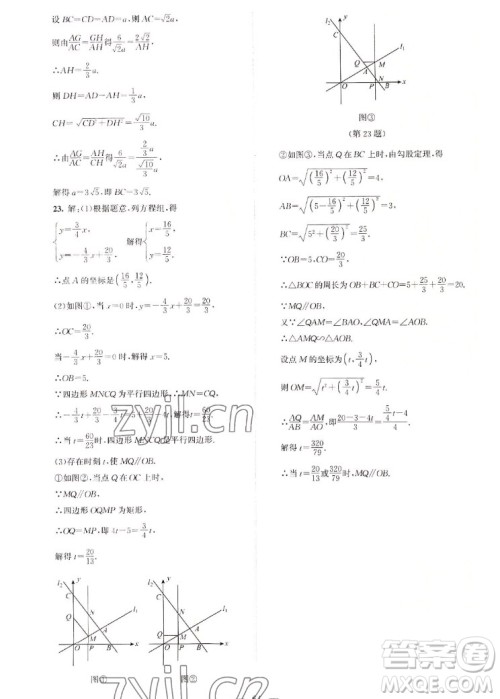 设 BC=CD=AD=a，则 AC=√2a.
则由 AG/AC=GH/AH 得 6/(√2a)=2√2/AH.
∴AH=2/3 a.
则 DH=AD-AH=1/3 a,
CH=√(CD²+DH²)=√10/3 a.
∴由 AG/AC=AH/GH 得 6/(√2a)=
解得 a=3√5. ∴BC=3√5.
23. 解：(1)根据题意，列方程组，得
{y=3/4 x, y=-4/3 x+20/3, 解得 {x=16/5, y=12/5.
∴点 A 的坐标是(16/5, 12/5).
(2)如图①，当 x=0 时，y=-4/3 x+20/3=20/3.
∴OC=20/3.
当-4/3 x+20/3=0 时，解得 x=5.
∴OB=5.
∵四边形 MNCQ 为平行四边形，∴MN=CQ.
∴-4/3 t+20/3-3/4 t=t. 解得 t=
∴当 t=60/23 时，四边形 MNCQ 是平行四边形.
(3)存在时刻 t，使 MQ∥OB.
①如图②，当点 Q 在 OC 上时，
∵MQ∥OB,
∴四边形 OQMP 为矩形，
∴OQ=MP，即 t-5=3/4 t.
解得 t=20/13.
l₂ y C N Q A M l₁ O P B x
图①
l₂ y C N A Q M l₁ O P B x
图②
l₂ y C l₁ Q M A O P B x
图③
(第 23 题)
②如图③，当点 Q 在 BC 上时，由勾股定理，得
OA=√((16/5)²+(12/5)²)=4,
AB=√((5-16/5)²+(12/5)²)=3,
BC=√(5²+(20/3)²)=25/3.
∵OB=5，CO=20/3,
∴△BOC 的周长为 OB+BC+CO=5+25/3+20/3=20.
∵MQ∥OB,
又∵∠QAM=∠BAO，∠MQA=∠OBA,
∴△AMQ∽△AOB.
设点 M 的坐标为(t, 3/4 t),
则 OM=√(t²+(3/4 t)²)=5/4 t.
∴AQ/AB=AM/AO，即
解得 t=320/79.
∴当 t=20/13 或 t=320/79 时，MQ∥OB.
zyjl.cn
zyjl.cn
答案圈
MXQE.COM